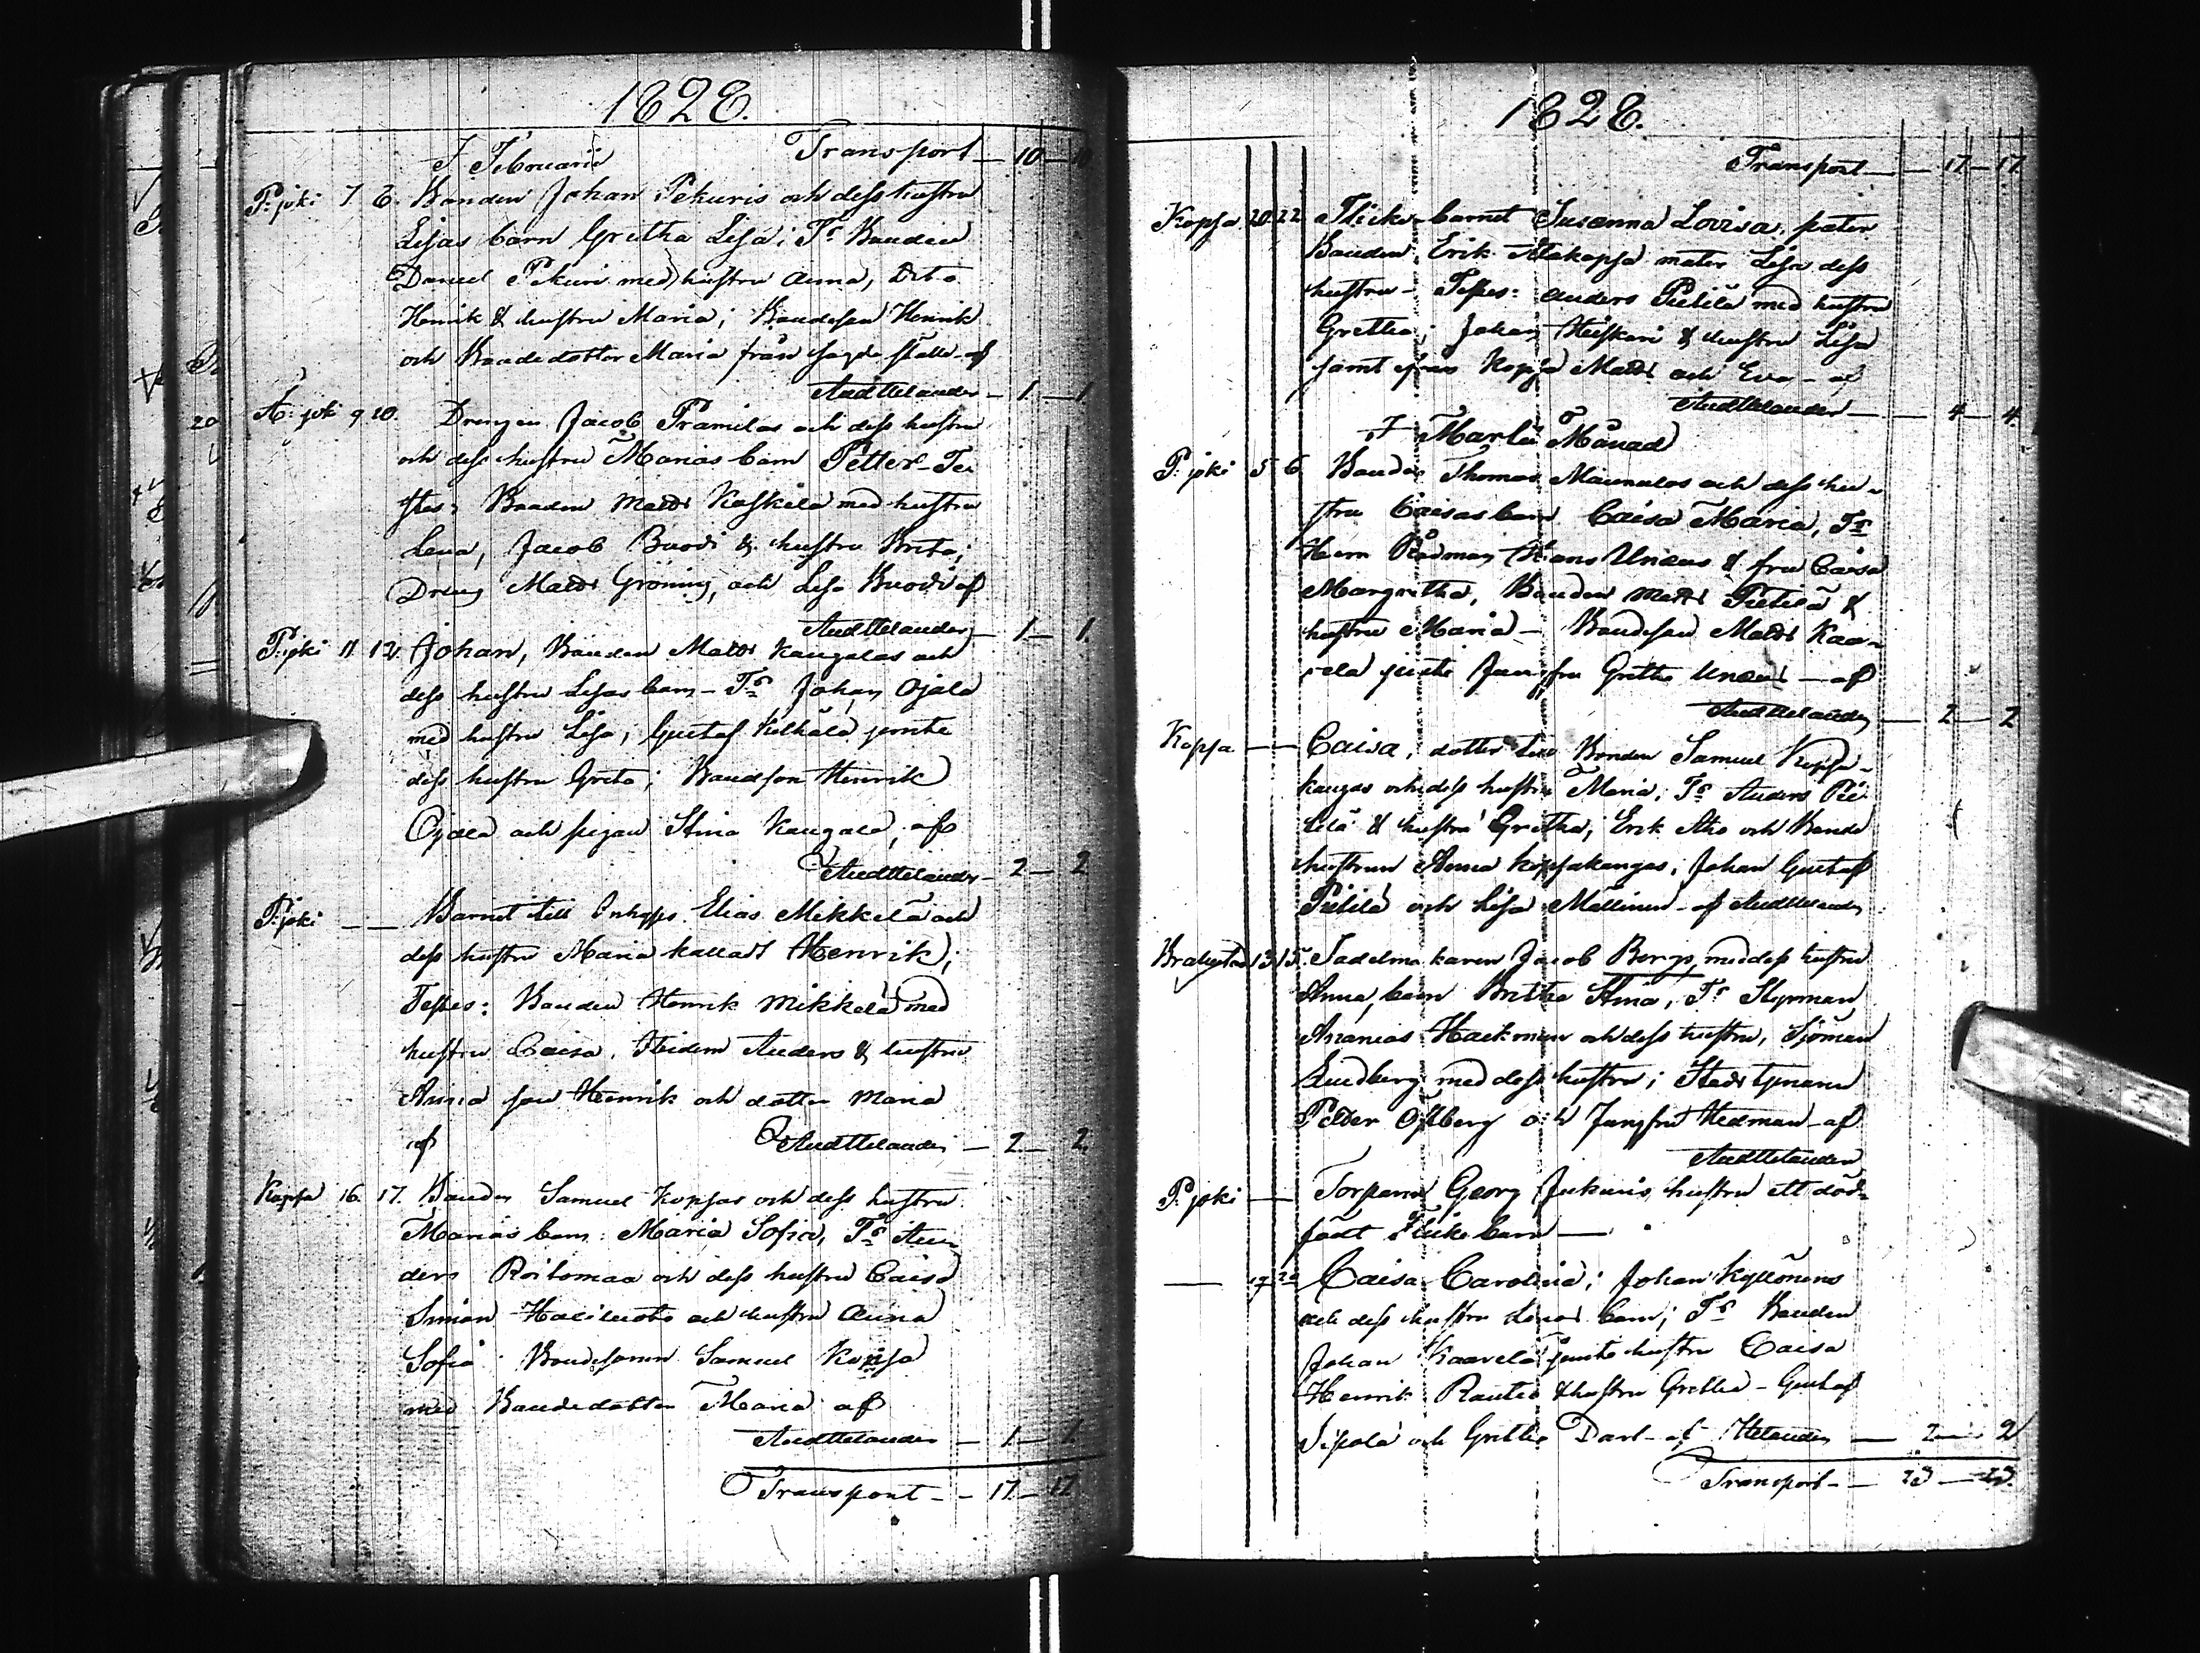 1828.
I Februarii Transport — 10 — 10
P: joki 7 8. Bonden Johan Pekuris och dess hustru
Lisas barn Gretha Lisa; Ts Bonden
Daniel Pekuri med hustru Anna, Dito
Henrik & hustru Maria; Bondeson Henrik
och Bondedotter Maria från sagde ställe af
Audttelander — 1 — 1
A: joki 9 10. Drengen Jacob Pramilas och dess hustru
och dess hustru Marias barn Petter Te
stes: Bonden Matts Koskela med hustru
Lena, Jacob Buodi & hustru Brita;
Dreng Matts Gröning, och Lisa Buodi af
Audttelander — 1 — 1
P: joki 11 12 Johan, Bonden Matts Kangalas och
dess hustru Lisas barn – Ts Johan Ojala
med hustru Lisa; Gustaf Kelhälä jemte
dess hustru Greta; Bondeson Henrik
Ojala och pigan Stina Kangala, af
Audttelander — 2 — 2
P: joki — — Barnet till Inhyss. Elias Mikkelä och
dess hustru Maria kalladt Henrik;
Testes: Bonden Henrik Mikkelä med
hustru Caisa, Ibidem Anders & hustru
Anna son Henrik och dotter Maria
af Audttelander — 2 — 2
Kopsa 16. 17. Bonden Samuel Kopsas och dess hustru
Marias barn: Maria Sofia, Ts An
ders Roitomaa och dess hustru Caisa
Simon och hustru Anna
Sofia Bondesonen Samuel Kopsa
med Bondedotter Maria af
Audttelander — 1 — 1
Transport — 17 — 17
1828.
Transport — 17 — 17
Kopsa 20 22 Flicke barnet Susanna Lovisa, pater
Bonden Erik Alakopsa mater Lisa dess
hustru – Testes: Anders Pietilä med hustru
Gretha; Johan & hustru Lisa
samt från Kopsa Matts och Eva – af
Audttelander — 4 — 4
I Martii Månad
P: joki 5 6 Bonden Thomas Maunulas och dess hu-
stru Caisas barn Caisa Maria, Ts
Herr Rådman Hans Union & fru Caisa
Margretha, Bonden Matts Pietilä &
hustru Maria – Bondeson Matts Kaa-
rela jemte Jungfru Gretha – af
Audttelander — 2 — 2
Kopsa — Caisa, dotter till Bonden Samuel Kopsa-
kangas och dess hustru Maria; Ts Anders Pie
tilä & hustru Gretha; Erik Aho och Bonde
hustrun Anna Kopsakangas; Johan Gustaf
Pietilä och Lisa Mällinen – af Audttelander
Brahestad 13 15. Sadelmakaren Jacob Bergs, med dess hustru
Anna, barn Britha Stina, Ts Styrman
Ananias Hackman och dess hustru, Sjöman
Lindberg med dess hustru;
Petter Östberg och Jungfru Hedman – af
Audttelander
P: joki — Torparen Georg Jukuris hustru ett död-
födt Flicke barn —
— 17 20 Caisa Carolina; Johan Kyllönens
och dess hustru Lenas barn; Ts Bonden
Johan Kaarela jemte hustru Caisa
Henrik Rautio & hustru Gretha – Gustaf
Sipola och Gretha – af Audttelander — 2 — 2
Transport — 25 — 25